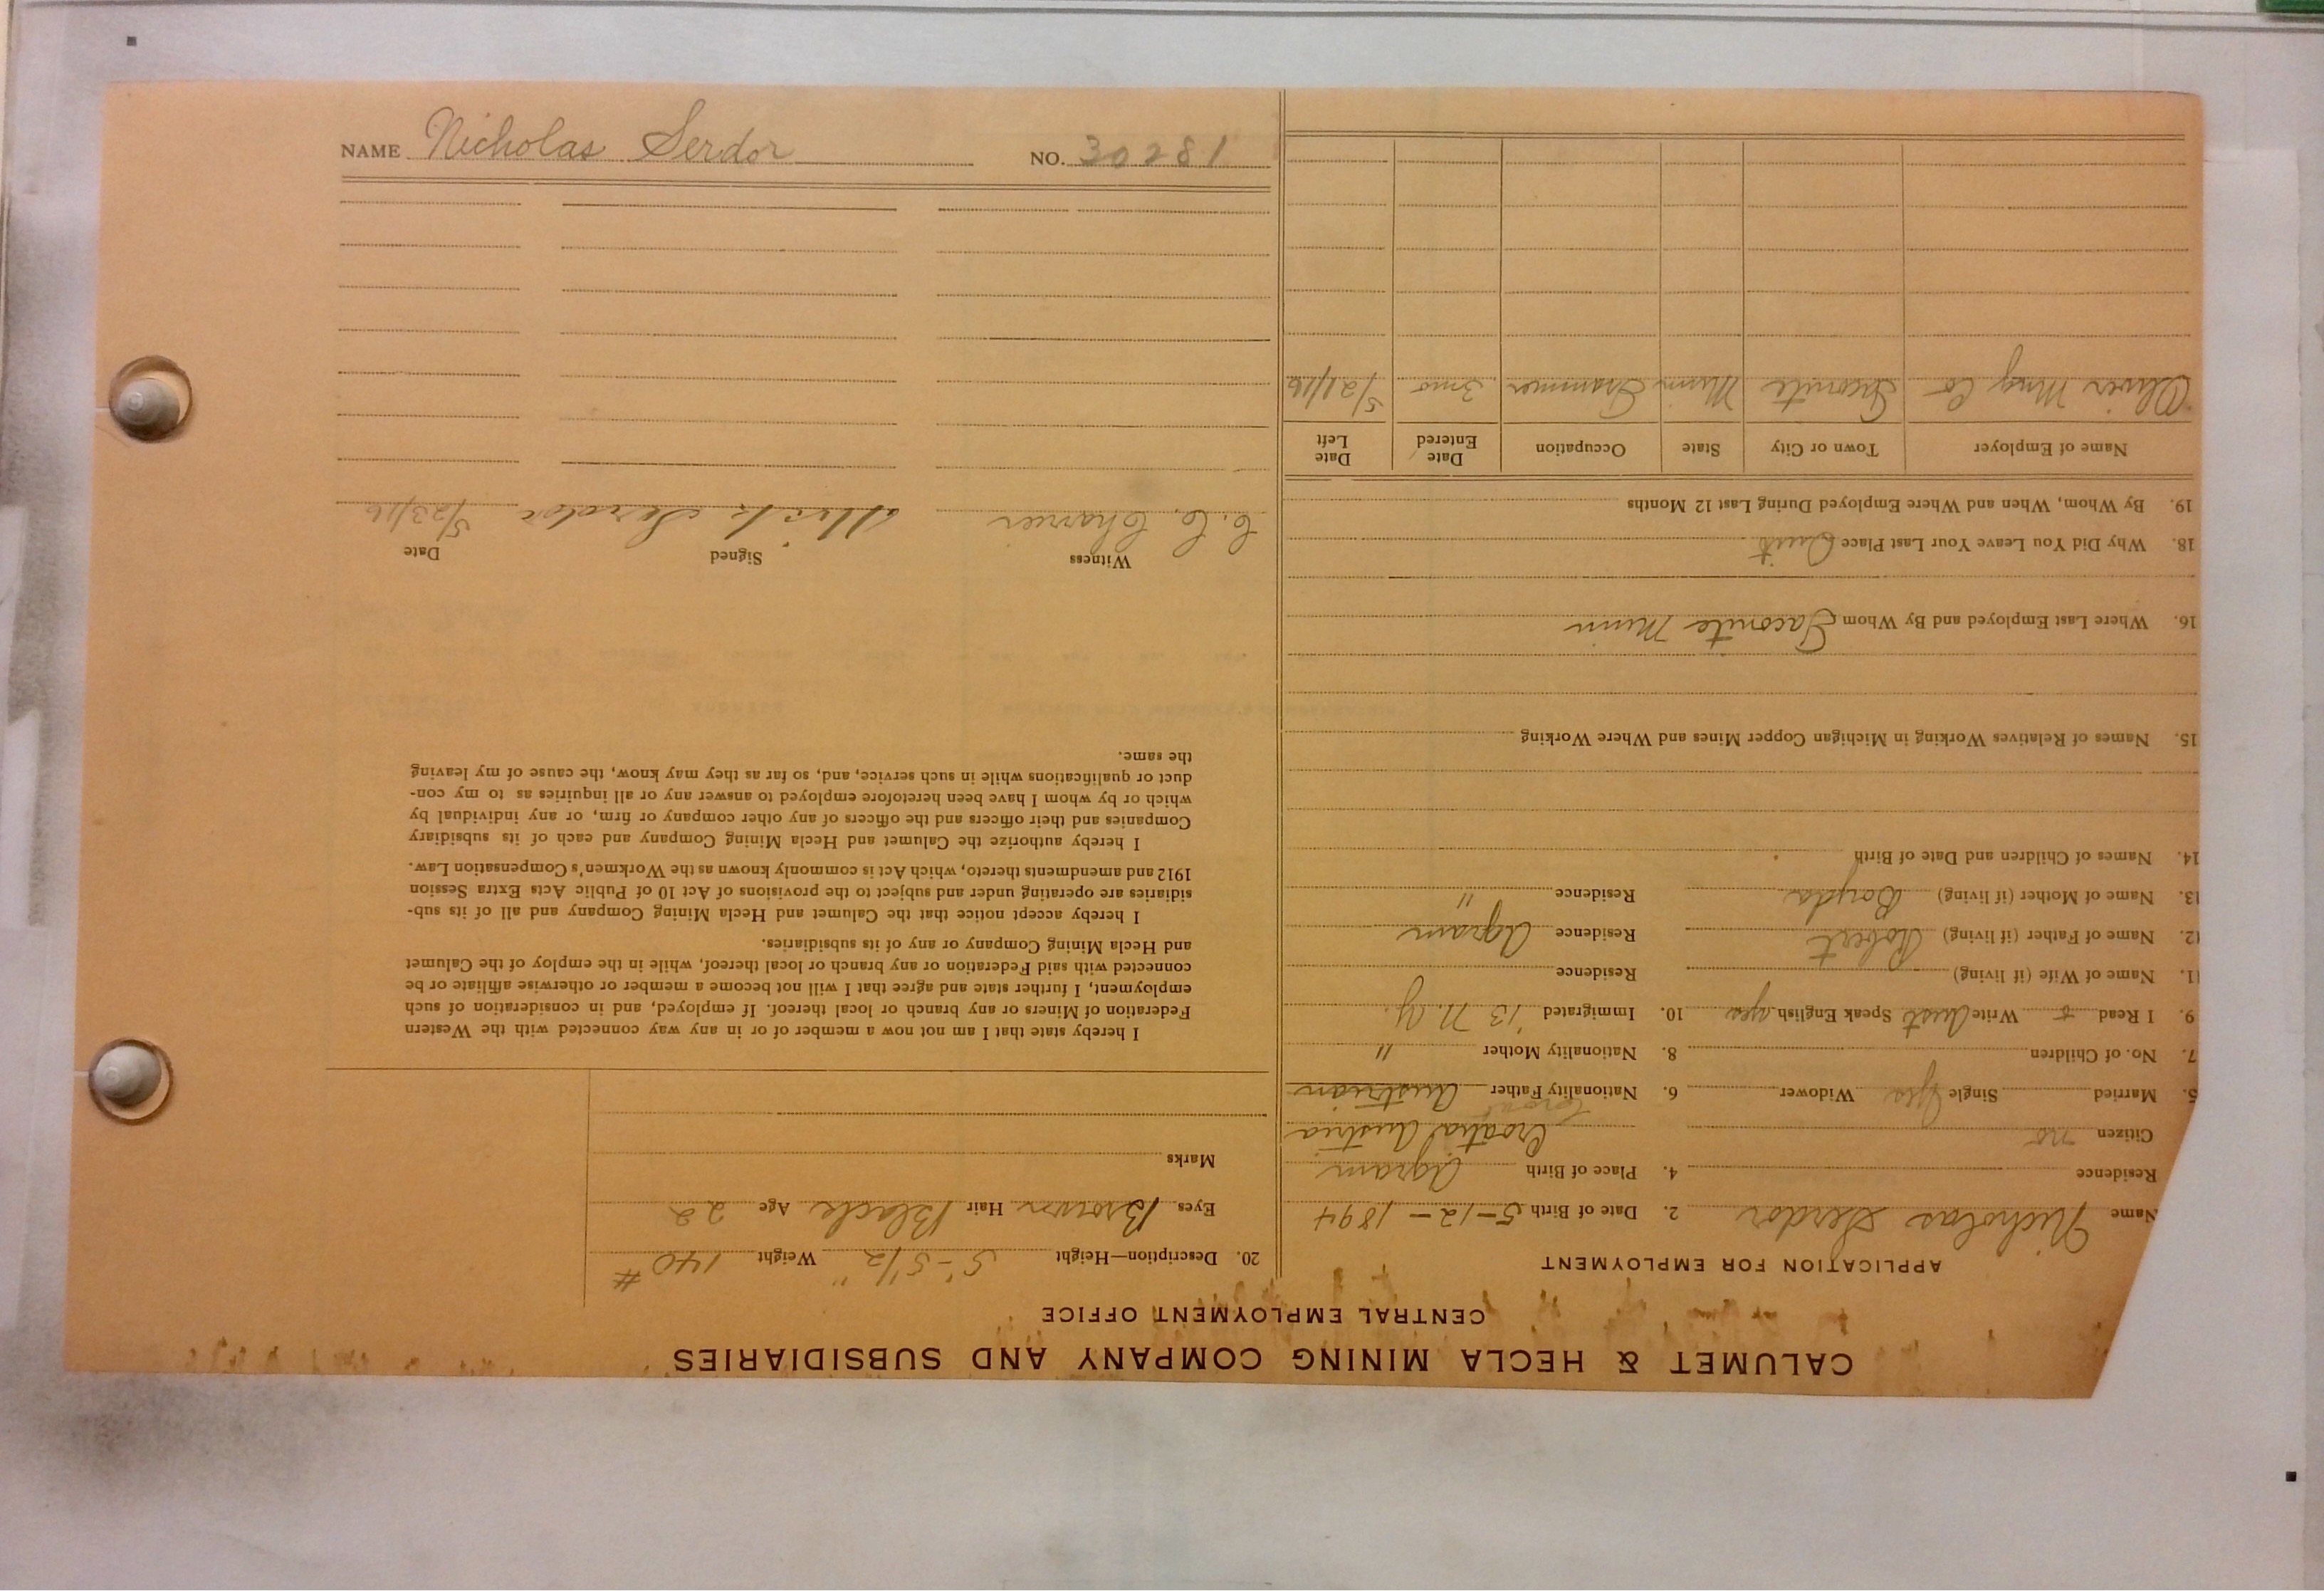 NAME Nicholas Serdor NO. 30281
CALUMET & HECLA MINING COMPANY AND SUBSIDIARIES
CENTRAL EMPLOYMENT OFFICE
APPLICATION FOR EMPLOYMENT
Name Nicholas Serdor 2. Date of Birth 5-12-1894
Residence 4. Place of Birth Agram
Citizen no Croatia Austria
5. Married Single Yes Widower 6. Nationality Father Austrian
Croat
7. No. of Children 8. Nationality Mother "
9. I Read & Write Aust Speak English yes 10. Immigrated '13 N.Y.
11. Name of Wife (if living) Residence
12. Name of Father (if living) Robert Residence Agram
13. Name of Mother (if living) Residence "
14. Names of Children and Date of Birth
15. Names of Relatives Working in Michigan Copper Mines and Where Working
16. Where Last Employed and By Whom Taconite Minn
18. Why Did You Leave Your Last Place Quit
19. By Whom, When and Where Employed During Last 12 Months
Name of Employer Town or City State Occupation Date Entered Date Left
Oliver Ming Co Taconite Minn Trammer 3 mo 5/21/16
20. Description—Height 5'-5 1/2" Weight 140 #
Eyes Brown Hair Black Age 22
Marks
I hereby state that I am not now a member of or in any way connected with the Western
Federation of Miners or any branch or local thereof. If employed, and in consideration of such
employment, I further state and agree that I will not become a member or otherwise affiliate or be
connected with said Federation or any branch or local thereof, while in the employ of the Calumet
and Hecla Mining Company or any of its subsidiaries.
I hereby accept notice that the Calumet and Hecla Mining Company and all of its sub-
sidiaries are operating under and subject to the provisions of Act 10 of Public Acts Extra Session
1912 and amendments thereto, which Act is commonly known as the Workmen's Compensation Law.
I hereby authorize the Calumet and Hecla Mining Company and each of its subsidiary
Companies and their officers and the officers of any other company or firm, or any individual by
which or by whom I have been heretofore employed to answer any or all inquiries as to my con-
duct or qualifications while in such service, and, so far as they may know, the cause of my leaving
the same.
Witness Signed Date
C. C. Serdor 5/23/16